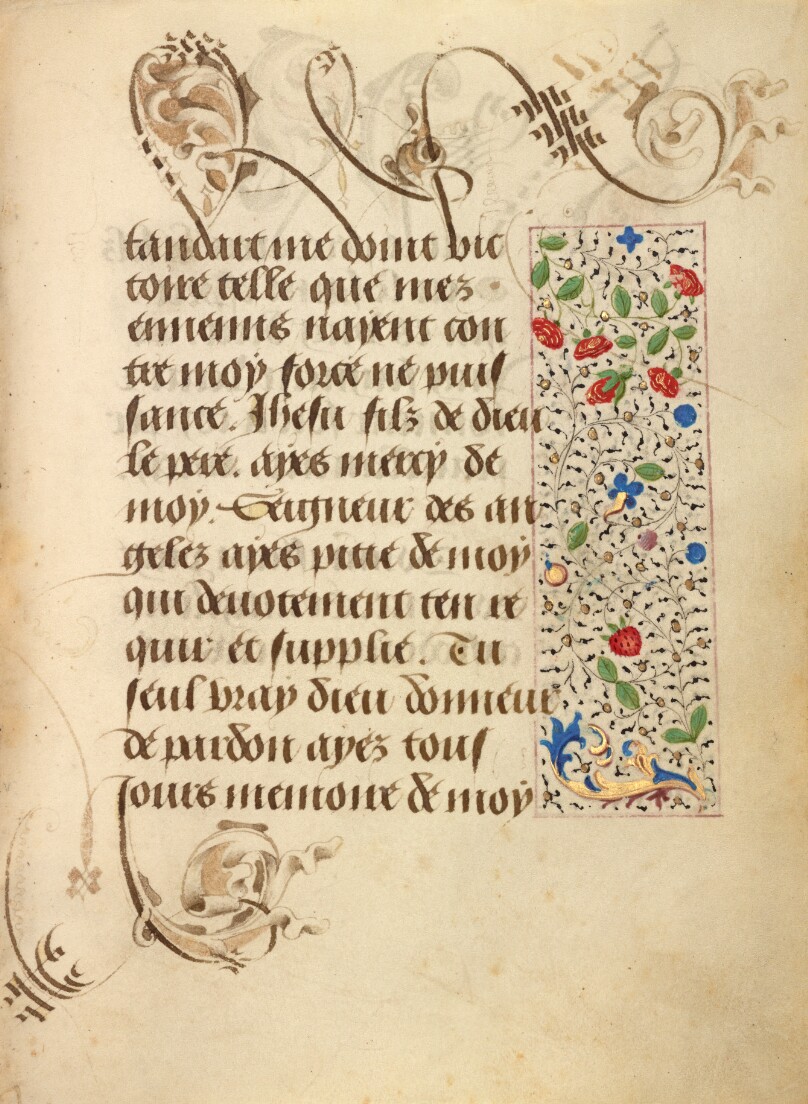 tandart me doint vic
toire telle que mez
ennemis najent con
tre moy force ne puis
sance. Jhesu filz de dieu
le pere. ayes mercy de
moy. Seigneur des an
gelez ayes pitie de moy
qui deuotement ten re
quir et supplie. Tu
seul vray dieu donneur
de pardon ayez tous
iours memoire de moy